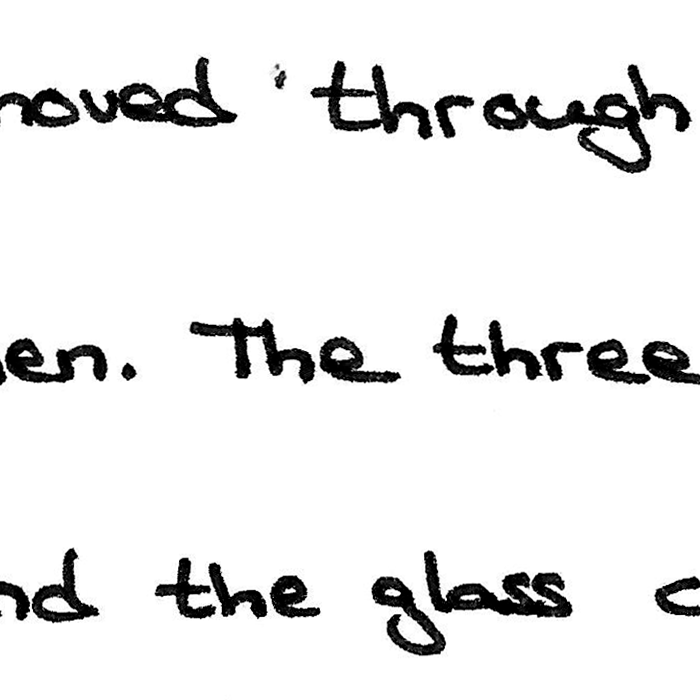 moved through
en. The three
nd the glass